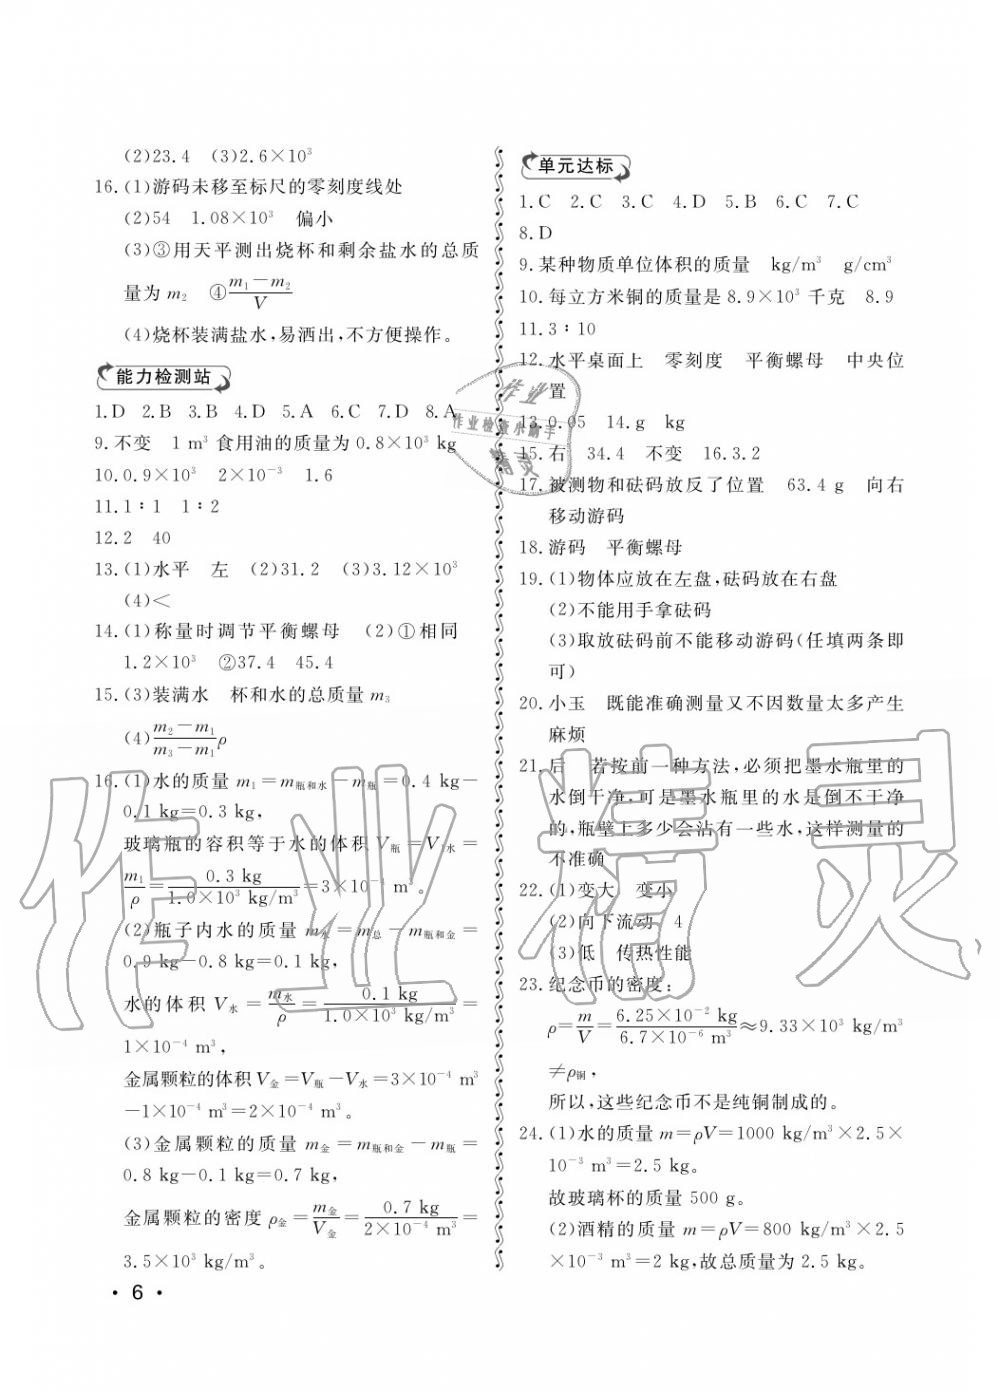 (2)23.4　(3)2.6×10³
16.(1)游码未移至标尺的零刻度线处
(2)54　1.08×10³　偏小
(3)③用天平测出烧杯和剩余盐水的总质
量为 m₂　④(m₁－m₂)/V
(4)烧杯装满盐水,易洒出,不方便操作。
能力检测站
1.D　2.B　3.B　4.D　5.A　6.C　7.D　8.A
9.不变　1 m³ 食用油的质量为 0.8×10³ kg
10.0.9×10³　2×10⁻³　1.6
11.1∶1　1∶2
12.2　40
13.(1)水平　左　(2)31.2　(3)3.12×10³
(4)＜
14.(1)称量时调节平衡螺母　(2)①相同
1.2×10³　②37.4　45.4
15.(3)装满水　杯和水的总质量 m₃
(4)(m₂－m₁)/(m₃－m₁)ρ
16.(1)水的质量 m₁＝m瓶和水－m瓶＝0.4 kg－
0.1 kg＝0.3 kg,
玻璃瓶的容积等于水的体积 V瓶＝V1水＝
m₁/ρ＝0.3 kg/(1.0×10³ kg/m³)＝3×10⁻⁴ m³。
(2)瓶子内水的质量 m水＝m总－m瓶和金＝
0.9 kg－0.8 kg＝0.1 kg,
水的体积 V水＝m水/ρ＝0.1 kg/(1.0×10³ kg/m³)＝
1×10⁻⁴ m³,
金属颗粒的体积 V金＝V瓶－V水＝3×10⁻⁴ m³
－1×10⁻⁴ m³＝2×10⁻⁴ m³。
(3)金属颗粒的质量 m金＝m瓶和金－m瓶＝
0.8 kg－0.1 kg＝0.7 kg,
金属颗粒的密度 ρ金＝m金/V金＝0.7 kg/(2×10⁻⁴ m³)＝
3.5×10³ kg/m³。
· 6 ·
单元达标
1.C　2.C　3.C　4.D　5.B　6.C　7.C
8.D
9.某种物质单位体积的质量　kg/m³　g/cm³
10.每立方米铜的质量是 8.9×10³ 千克　8.9
11.3∶10
12.水平桌面上　零刻度　平衡螺母　中央位
置
13.0.05　14.g　kg
15.右　34.4　不变　16.3.2
17.被测物和砝码放反了位置　63.4 g　向右
移动游码
18.游码　平衡螺母
19.(1)物体应放在左盘,砝码放在右盘
(2)不能用手拿砝码
(3)取放砝码前不能移动游码(任填两条即
可)
20.小玉　既能准确测量又不因数量太多产生
麻烦
21.后　若按前一种方法,必须把墨水瓶里的
水倒干净,可是墨水瓶里的水是倒不干净
的,瓶壁上多少会沾有一些水,这样测量的
不准确
22.(1)变大　变小
(2)向下流动　4
(3)低　传热性能
23.纪念币的密度:
ρ＝m/V＝(6.25×10⁻² kg)/(6.7×10⁻⁶ m³)≈9.33×10³ kg/m³
≠ρ铜,
所以,这些纪念币不是纯铜制成的。
24.(1)水的质量 m＝ρV＝1000 kg/m³×2.5×
10⁻³ m³＝2.5 kg。
故玻璃杯的质量 500 g。
(2)酒精的质量 m＝ρV＝800 kg/m³×2.5
×10⁻³ m³＝2 kg,故总质量为 2.5 kg。
作业
作业检查小助手
精灵
作业精灵